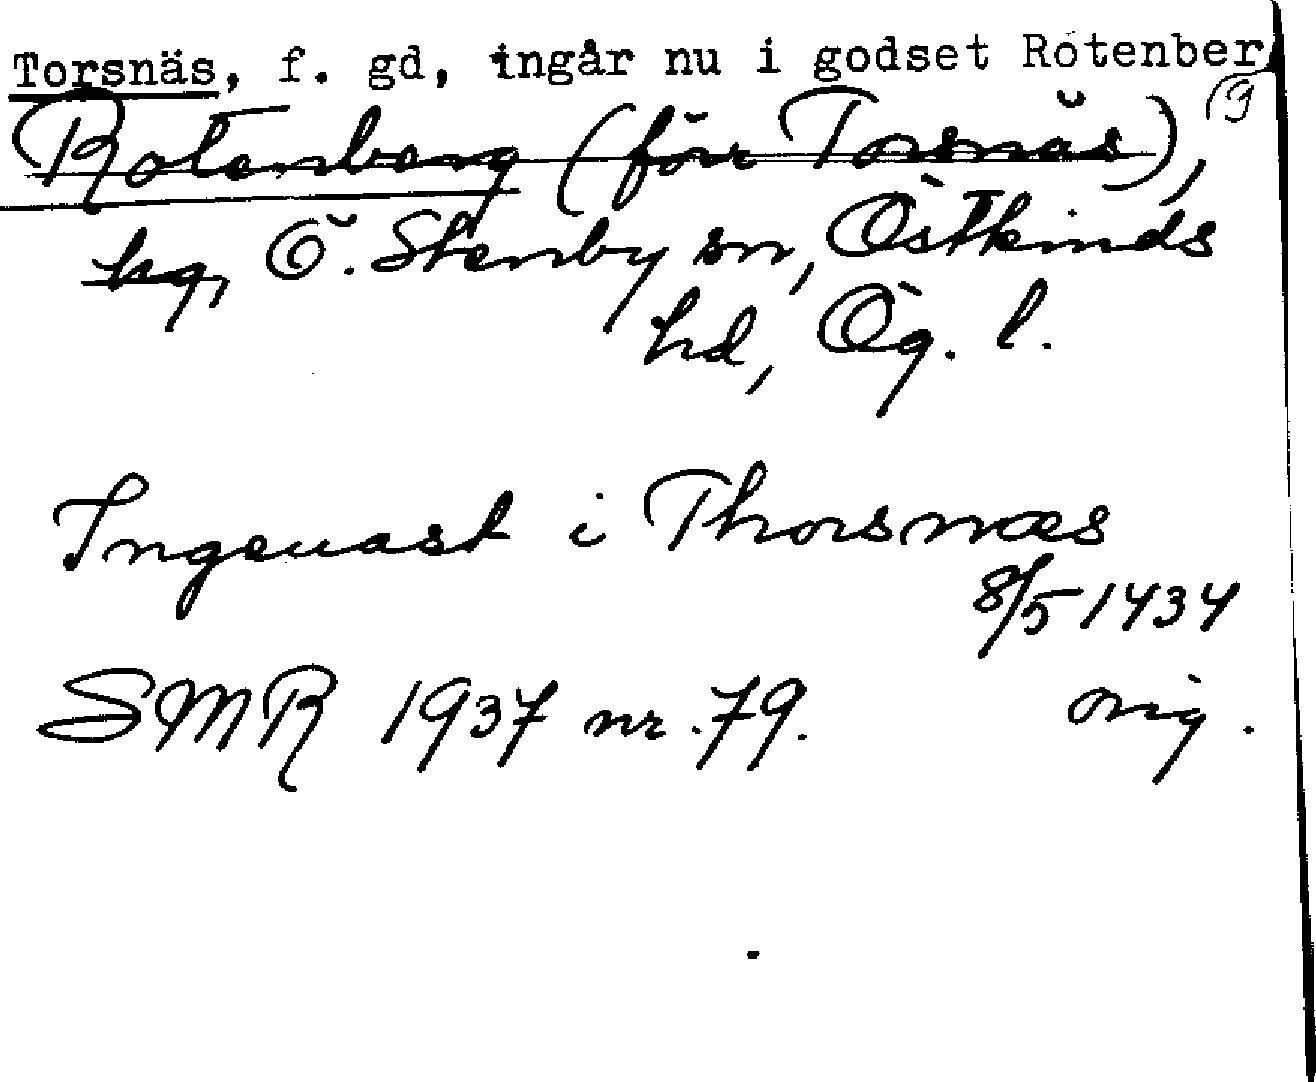 Torsnäs, f. gd, ingår nu i godset Rotenber
(g
Rotenberg (förr Torsnäs),
hg, Ö. Stenby sn, Östkinds
hd, Ög. l.
Ingeuast i Thorsnæs
8/5 1434
SMR 1937 nr. 79. orig.